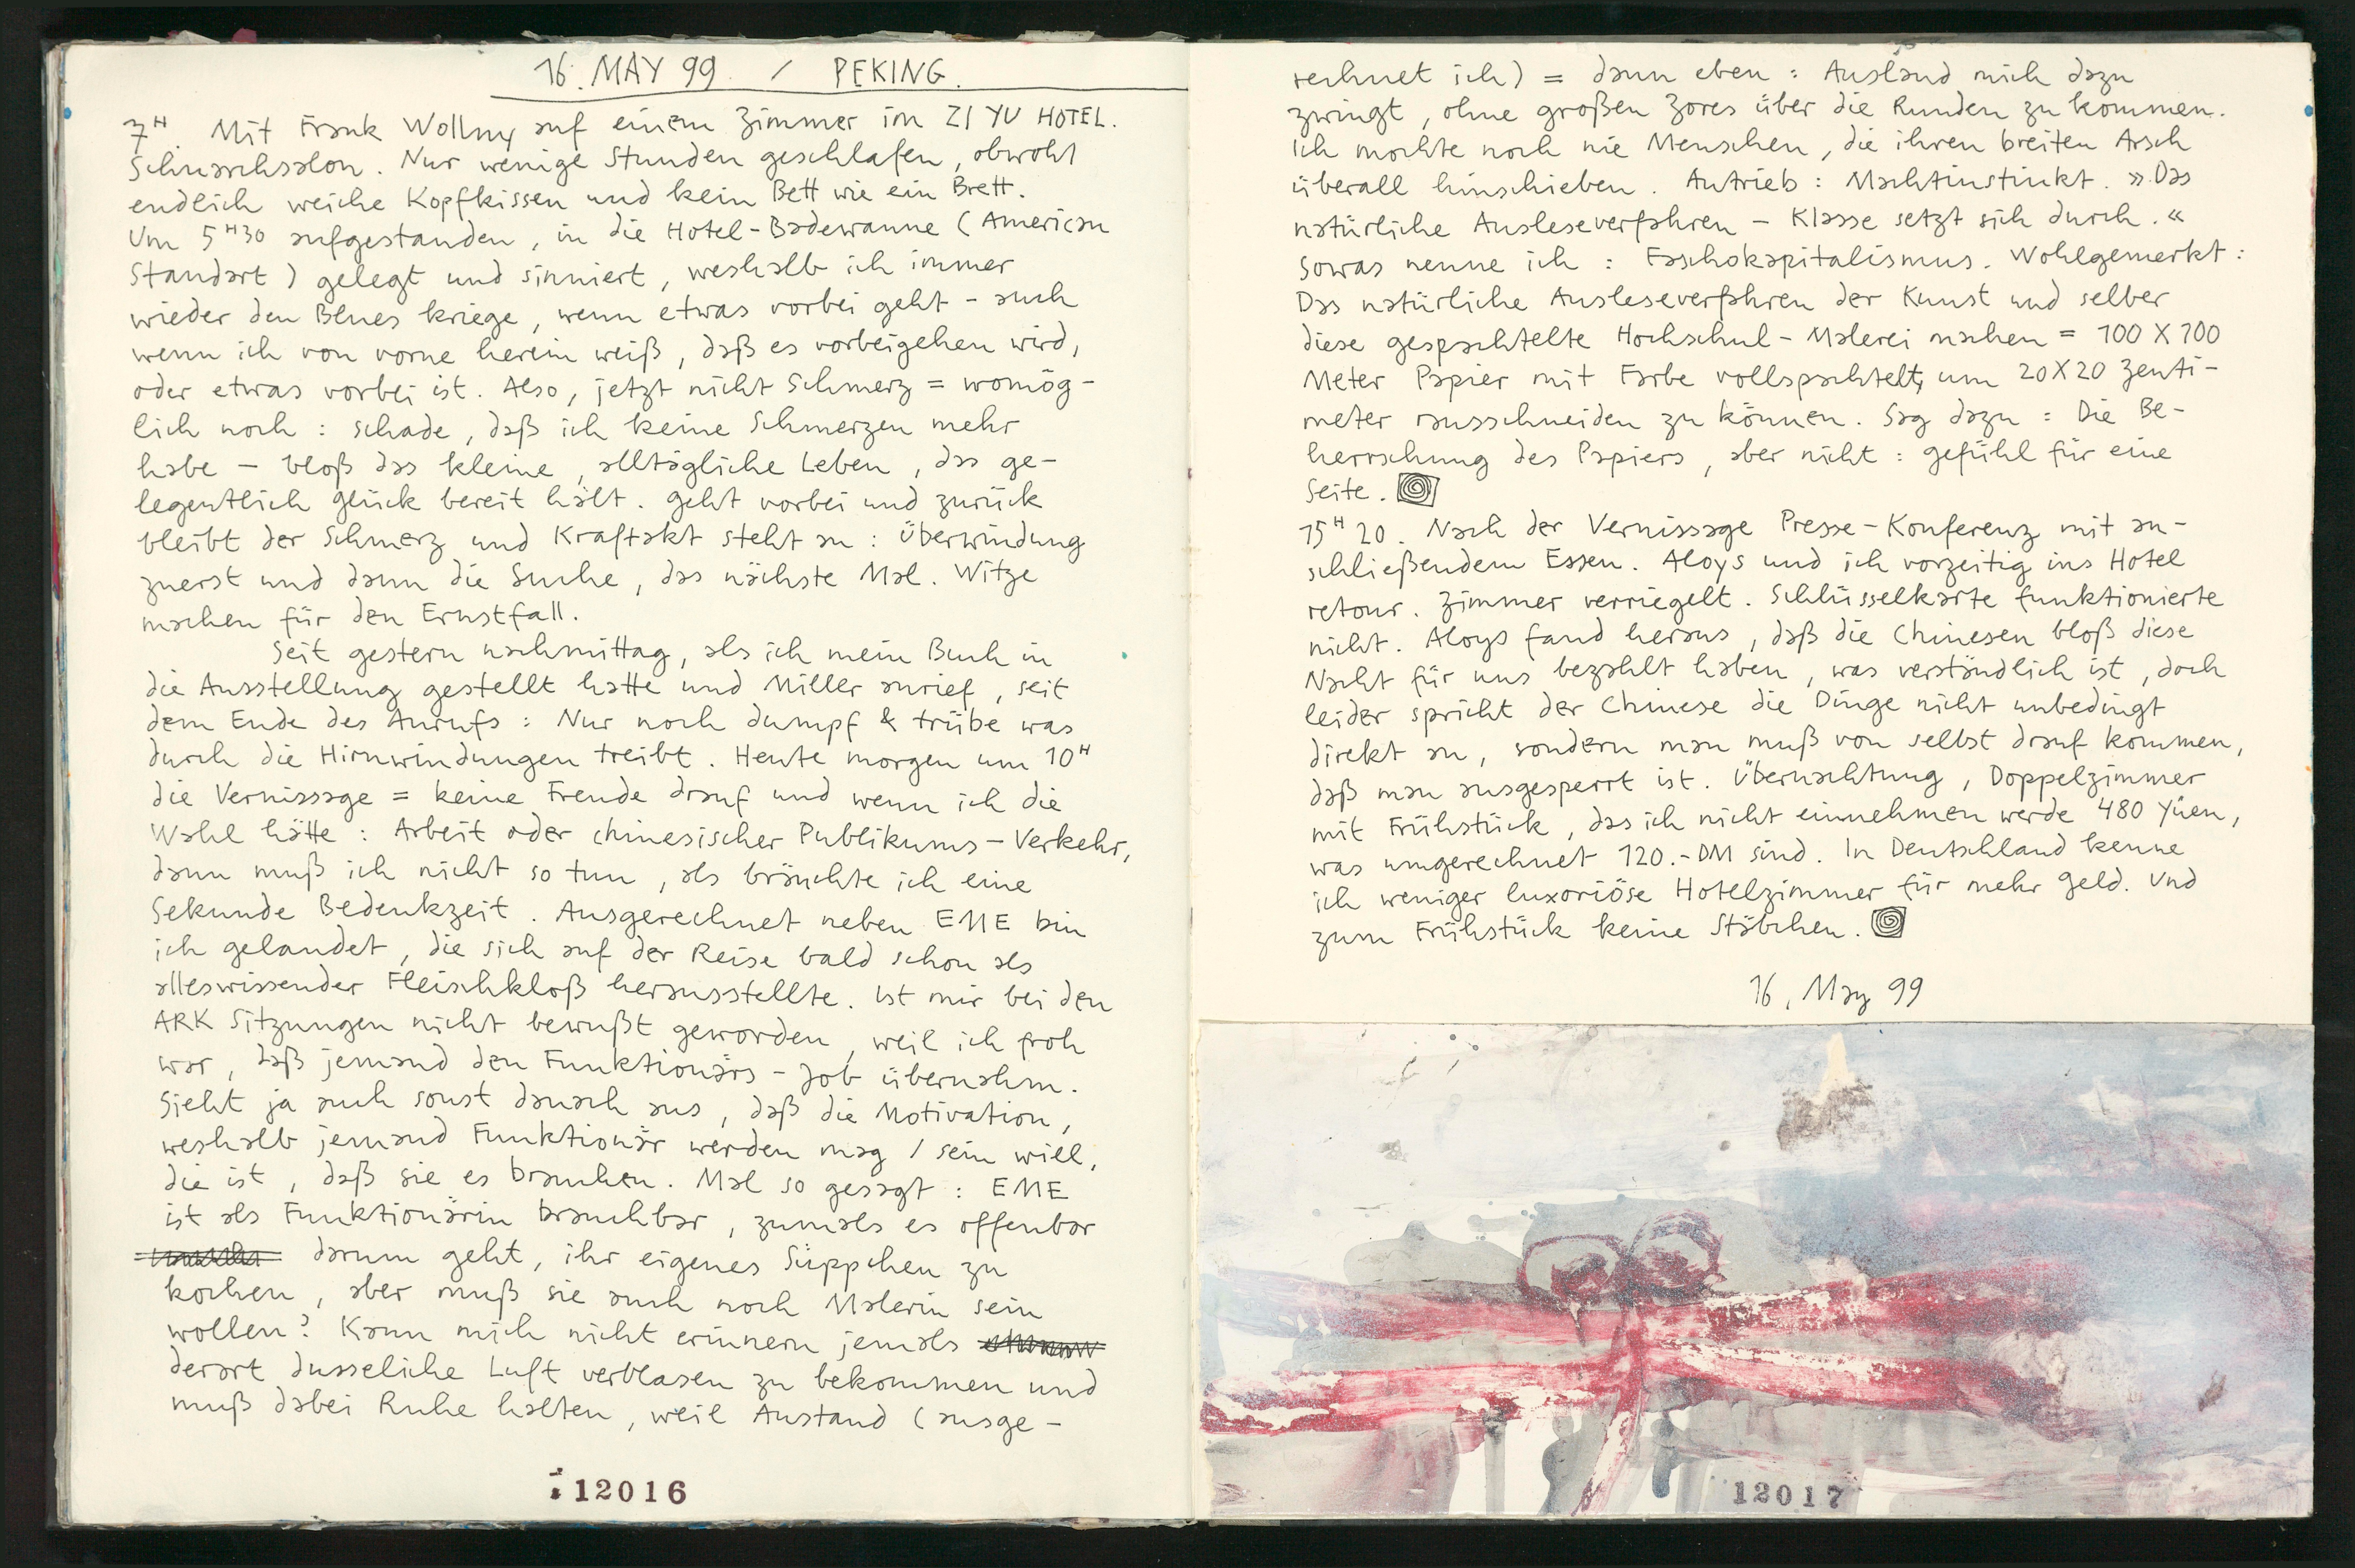 16. MAY 99. / PEKING.
7H. Mit Frank Wollny auf einem Zimmer im ZI YU HOTEL.
Schnarchsalon. Nur wenige Stunden geschlafen, obwohl
endlich weiche Kopfkissen und kein Bett wie ein Brett.
Um 5H30 aufgestanden, in die Hotel-Badewanne (American
Standart) gelegt und sinniert, weshalb ich immer
wieder den Blues kriege, wenn etwas vorbei geht - auch
wenn ich von vorne herein weiß, daß es vorbeigehen wird,
oder etwas vorbei ist. Also, jetzt nicht Schmerz = womög-
lich noch: schade, daß ich keine Schmerzen mehr
habe - bloß das kleine, alltägliche Leben, das ge-
legentlich Glück bereit hält. Geht vorbei und zurück
bleibt der Schmerz und Kraftakt steht an: Überwindung
zuerst und dann die Suche, das nächste Mal. Witze
machen für den Ernstfall.
Seit gestern nachmittag, als ich mein Buch in
die Ausstellung gestellt hatte und Miller anrief, seit
dem Ende des Anrufs: Nur noch dumpf & trübe was
durch die Hirnwindungen treibt. Heute morgen um 10H
die Vernissage = keine Freude drauf und wenn ich die
Wahl hätte: Arbeit oder chinesischer Publikums-Verkehr,
dann muß ich nicht so tun, als bräuchte ich eine
Sekunde Bedenkzeit. Ausgerechnet neben EME bin
ich gelandet, die sich auf der Reise bald schon als
alleswissender Fleischkloß herausstellte. Ist mir bei den
ARK Sitzungen nicht bewußt geworden, weil ich froh
war, daß jemand den Funktionärs-Job übernahm.
Sieht ja auch sonst danach aus, daß die Motivation,
weshalb jemand Funktionär werden mag / sein will,
die ist, daß sie es brauchen. Mal so gesagt: EME
ist als Funktionärin brauchbar, zumals es offenbar
darum geht, ihr eigenes Süppchen zu
kochen, aber muß sie auch noch Malerin sein
wollen? Kann mich nicht erinnern jemals
derart dusseliche Luft verblasen zu bekommen und
muß dabei Ruhe halten, weil Anstand (ausge-
12016
rechnet ich) = dann eben: Ausland mich dazu
zwingt, ohne großen Zores über die Runden zu kommen.
Ich mochte noch nie Menschen, die ihren breiten Arsch
überall hinschieben. Antrieb: Machtinstinkt. »Das
natürliche Ausleseverfahren - Klasse setzt sich durch.«
Sowas nenne ich: Faschokapitalismus. Wohlgemerkt:
Das natürliche Ausleseverfahren der Kunst und selber
diese gespachtelte Hochschul-Malerei machen = 100 X 100
Meter Papier mit Farbe vollspachtelt, um 20X20 Zenti-
meter rausschneiden zu können. Sag dazu: Die Be-
herrschung des Papiers, aber nicht: Gefühl für eine
Seite.
15H20. Nach der Vernissage Presse-Konferenz mit an-
schließendem Essen. Aloys und ich vorzeitig ins Hotel
retour. Zimmer verriegelt. Schlüsselkarte funktionierte
nicht. Aloys fand heraus, daß die Chinesen bloß diese
Nacht für uns bezahlt haben, was verständlich ist, doch
leider spricht der Chinese die Dinge nicht unbedingt
direkt an, sondern man muß von selbst drauf kommen,
daß man ausgesperrt ist. Übernachtung, Doppelzimmer
mit Frühstück, das ich nicht einnehmen werde 480 Yüen,
was umgerechnet 120.-DM sind. In Deutschland kenne
ich weniger luxoriöse Hotelzimmer für mehr Geld. Und
zum Frühstück keine Stäbchen.
16. May 99
12017